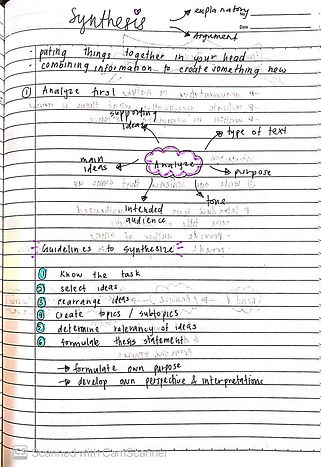 Synthesis
explanatory
argument
Date
- puting things together in your head
- combining information to create something new
1 Analyze first
supporting ideas
type of text
main ideas
Analyze
purpose
tone
intended audience
Guidelines to synthesize
1 Know the task
2 select ideas
3 rearrange ideas
4 create topics / subtopics
5 determine relevancy of ideas
6 formulate thesis statement
→ formulate own purpose
→ develop own perspective & interpretations
CS Scanned with CamScanner